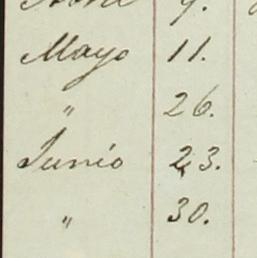 Mayo 11.
" 26.
Junio 23.
" 30.